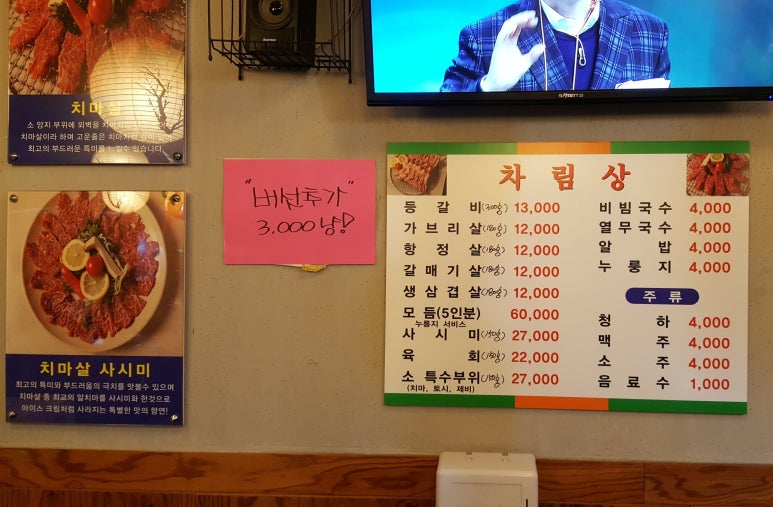 치마살
소 양지 부위에 외벽을 치마
치마살이라 하며 고운줄은 치마처럼
최고의 부드러운 특미를 느낄수 있습니다.
치마살 사시미
최고의 특미와 부드러움의 극치를 맛볼수 있으며
치마살 중 최고의 알치마를 사시미화 한것으로
아이스 크림처럼 사라지는 특별한 맛의 향연!
"버섯추가"
3.000냥!
차림상
등갈비 13,000
가브리살(180g) 12,000
항정살(180g) 12,000
갈매기살(180g) 12,000
생삼겹살(180g) 12,000
모듬(5인분) 60,000
누룽지 서비스
사시미 27,000
육회 22,000
소 특수부위 27,000
(치마, 토시, 제비)
비빔국수 4,000
열무국수 4,000
알밥 4,000
누룽지 4,000
주류
청하 4,000
맥주 4,000
소주 4,000
음료수 1,000